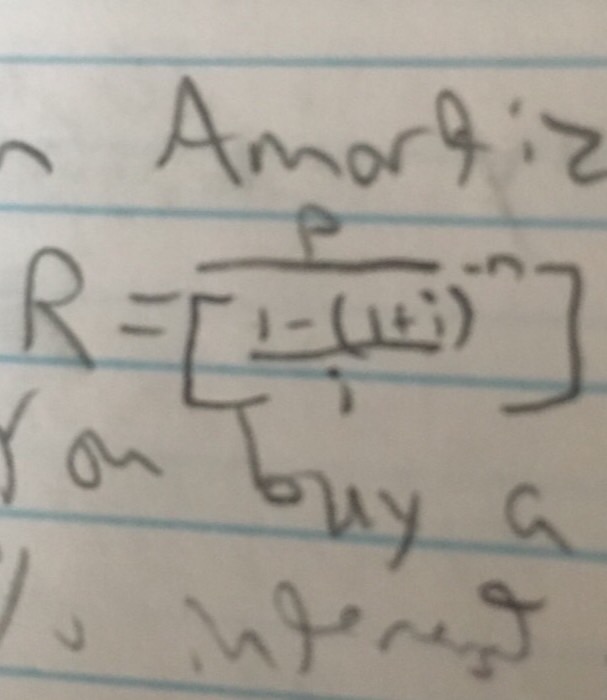 n Amortiz
R = P / [ (1-(1+i)^-n) / i ]
you buy a
% interest